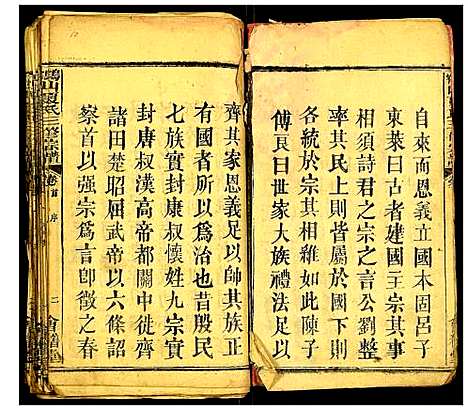 自來而恩義立國本固呂子
東萊曰古者建國主宗其事
相須詩君之宗之言公劉整
率其民上則皆屬於國下則
各統於宗其相維如此陳子
傅良曰世家大族禮法足以
齊其家恩義足以帥其族正
有省刑以為治也昔殷民
七族實封康叔懷姓九宗實
封唐叔漢高帝都關中徙齊
諸田楚昭屈武帝以六條詔
察首以强宗爲言卽徵之春
氏三修宗譜 卷首 序 二 會龍堂